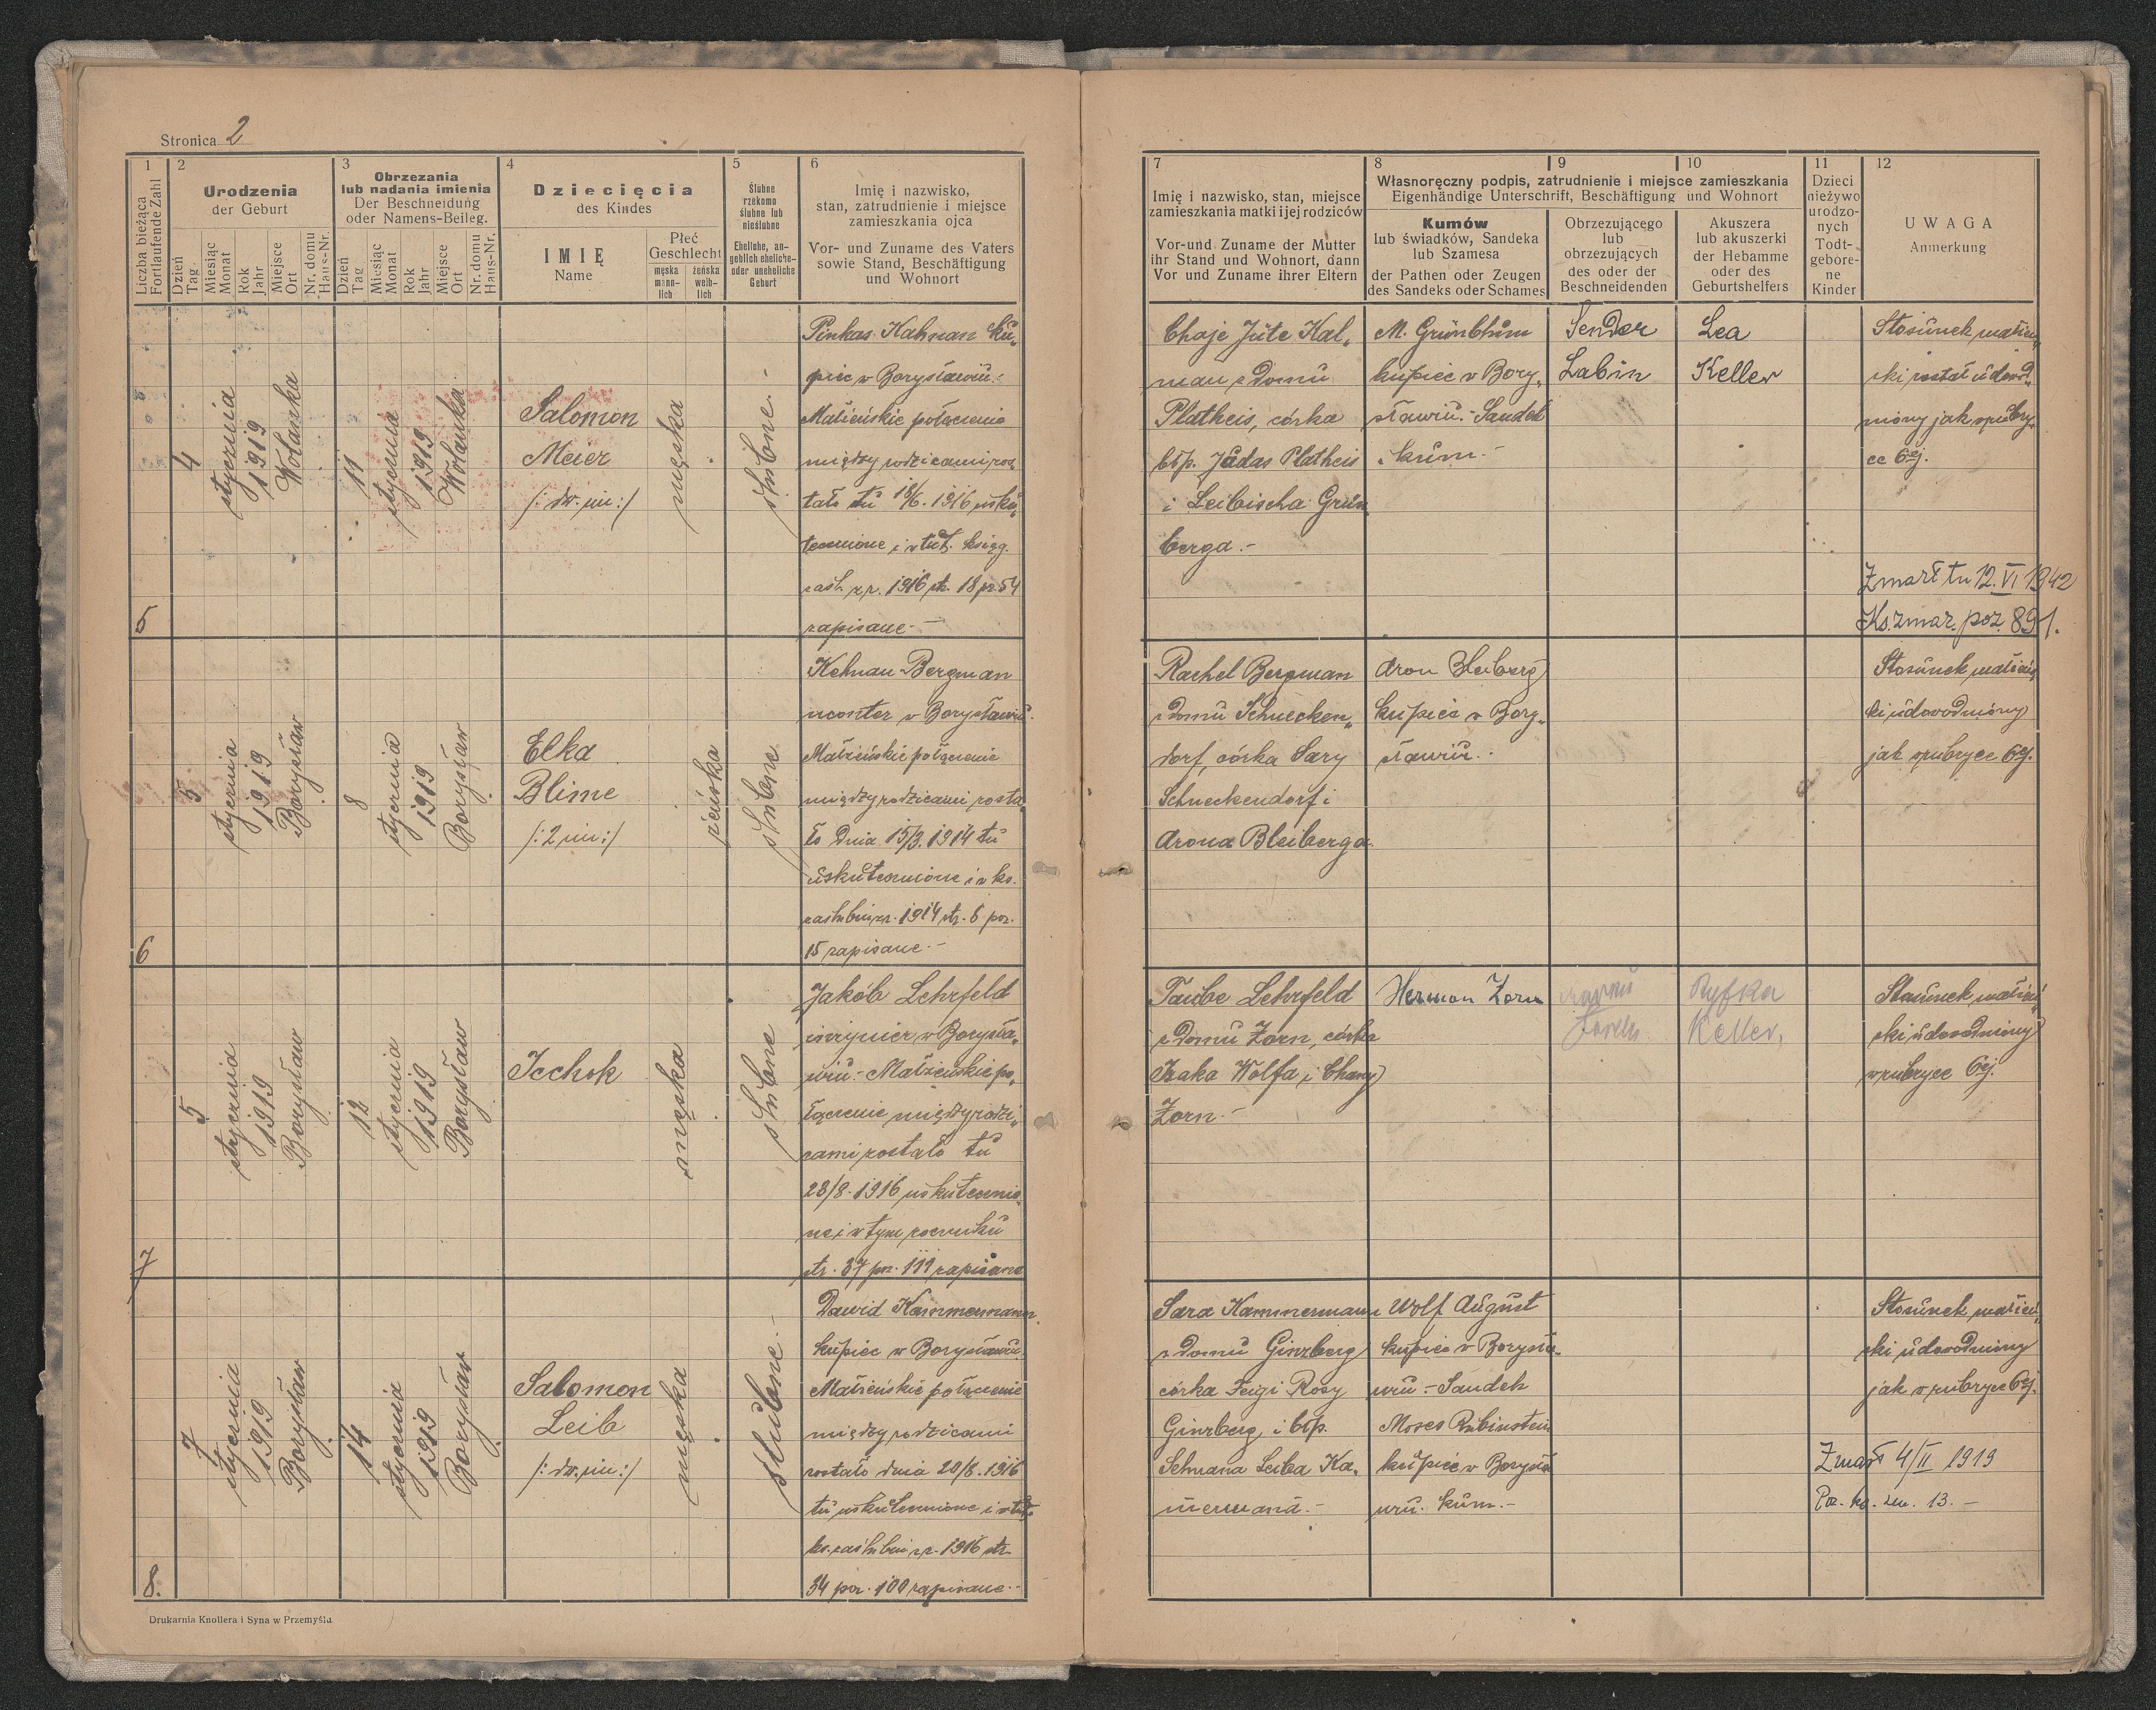 Stronica 2
1
Liczba bieżąca
Fortlaufende Zahl
2
Urodzenia
der Geburt
Dzień
Tag
Miesiąc
Monat
Rok
Jahr
Miejsce
Ort
Nr. domu
Haus-Nr.
3
Obrzezania
lub nadania imienia
Der Beschneidung
oder Namens-Beileg.
Dzień
Tag
Miesiąc
Monat
Rok
Jahr
Miejsce
Ort
Nr. domu
Haus-Nr.
4
Dziecięcia
des Kindes
IMIĘ
Name
Płeć
Geschlecht
męska
männ-
lich
żeńska
weib-
lich
5
Ślubne
rzekomo
ślubne lub
nieślubne
Eheliche, an-
geblich eheliche-
oder uneheliche
Geburt
6
Imię i nazwisko,
stan, zatrudnienie i miejsce
zamieszkania ojca
Vor- und Zuname des Vaters
sowie Stand, Beschäftigung
und Wohnort
7
Imię i nazwisko, stan, miejsce
zamieszkania matki i jej rodziców
Vor-und Zuname der Mutter
ihr Stand und Wohnort, dann
Vor und Zuname ihrer Eltern
Własnoręczny podpis, zatrudnienie i miejsce zamieszkania
Eigenhändige Unterschrift, Beschäftigung und Wohnort
8
Kumów
lub świadków, Sandeka
lub Szamesa
der Pathen oder Zeugen
des Sandeks oder Schames
9
Obrzezującego
lub
obrzezujących
des oder der
Beschneidenden
10
Akuszera
lub akuszerki
der Hebamme
oder des
Geburtshelfers
11
Dzieci
nieżywo
urodzo-
nych
Todt-
gebore-
ne
Kinder
12
UWAGA
Anmerkung
5
4
stycznia
1919
Wolanka
11
stycznia
1919
Wolanka
Salomon
Meier
/: dw. im :/
męska
ślubne.-
Pinkas Kalman ku„
piec w Borysławiu.-
Małżeńskie połączenie
między rodzicami zos„
tało tu 18/6. 1916 usku„
tecznione i w tut. księg.
zaśl. z r. 1916 str. 18 poz 54
zapisane.-
Chaje Jüte Kal„
man z domu
Platheis, córka
błp. Judas Platheis
i Leibischa Grün
berga.-
M. Grünblum
kupiec w Bory„
sławiu.- Sandek
i kum.-
Sender
Labin
Lea
Keller
Stosunek małżeń„
ski został udowod„
niony jak w rubry„
ce 6ej.
Zmarł tu 12.VI 1942
Ks. zmar. poz. 891.
6
5
stycznia
1919
Borysław
8
stycznia
1919
Borysław
Elka
Blime
/: 2 im :/
żeńska
ślubne
Kelman Bergman
monter w Borysławiu.
Małżeńskie połączenie
między rodzicami zosta„
ło dnia 15/3. 1914 tu
uskutecznione i w ks.
zaślubin z r. 1914 str. 6 poz.
15 zapisane.-
Rachel Bergman
z domu Schnecken„
dorf, córka Sary
Schneckendorf i
Arona Bleiberga.
Aron Bleiberg
kupiec w Bory„
sławiu.-
Stosunek małżeń„
ski udowodniony
jak w rubryce 6ej.
7
5
stycznia
1919
Borysław
12
stycznia
1919
Borysław
Icchok
męska
ślubne
Jakób Lehrfeld
inżynier w Borysła„
wiu.- Małżeńskie po„
łączenie między rodzi„
cami zostało tu
28/8. 1916 uskutecznio„
ne i w tym roczniku
str. 37 poz. 111 zapisane
Taube Lehrfeld
z domu Zorn, córka
Isaka Wolfa i Chany
Zorn.-
Herman Zorn
Ryfka
Keller,
Stosunek małżeń„
ski udowodniony
w rubryce 6ej.
8.
7
stycznia
1919
Borysław
14
stycznia
1919
Borysław
Salomon
Leib
/: dw. im :/
męska
ślubne.-
Dawid Kammermann
kupiec w Borysławiu.
Małżeńskie połączenie
między rodzicami
zostało dnia 20/8. 1916
tu uskutecznione i w tut.
ks. zaślubin z r. 1916 str.
34 poz. 100 zapisane.-
Sara Kammermann
z domu Ginzberg
córka Feigi Rosy
Ginzberg i błp.
Selmana Leiba Ka„
mermana.-
Wolf August
kupiec w Borysła„
wiu.- Sandek
Moses Rubinstein
kupiec w Borysła
wiu. kum.-
Stosunek małżeń„
ski udowodniony
jak w rubryce 6ej.
Zmarł 4/II 1919
Poz. ks. zm. 13.-
Drukarnia Knollera i Syna w Przemyślu